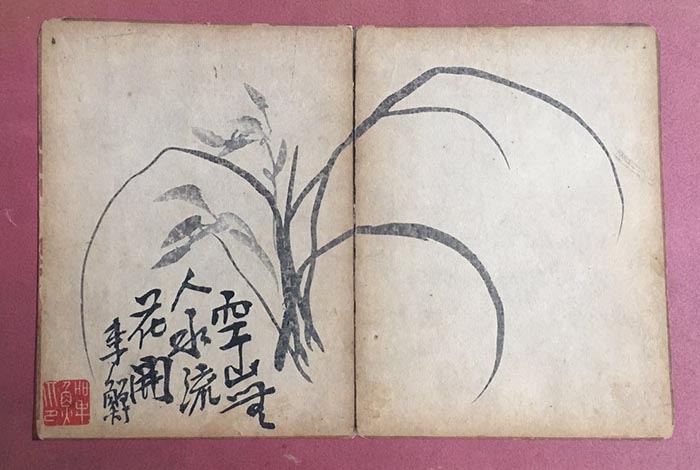 空山無
人水流
花開
李鱓